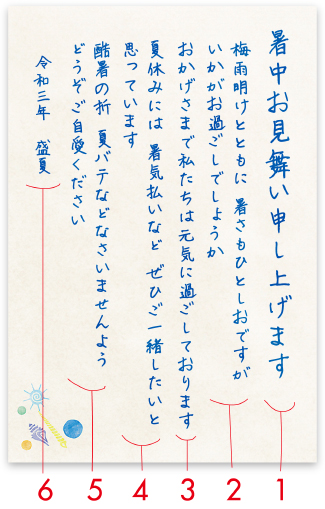 暑中お見舞い申し上げます
梅雨明けとともに 暑さもひとしおですが
いかがお過ごしでしょうか
おかげさまで私たちは元気に過ごしております
夏休みには 暑気払いなど ぜひご一緒したいと
思っています
酷暑の折 夏バテなどなさいませんよう
どうぞご自愛ください
令和三年 盛夏
6 5 4 3 2 1